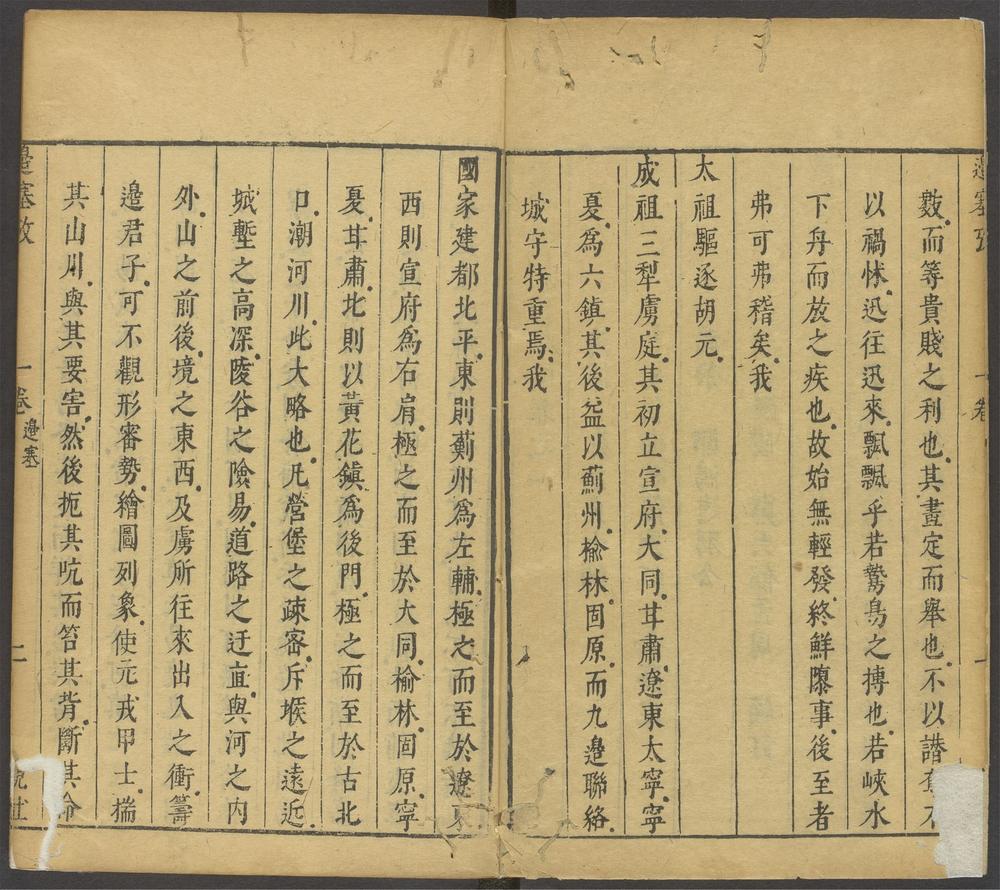 邊塞攷 一卷 一
數而等貴賤之利也其畫定而舉也不以譖奪不
以禍怵迅往迅來飄飄乎若鷙鳥之摶也若峽水
下舟而放之疾也故始無輕發終鮮隳事後至者
弗可弗稽矣我
太祖驅逐胡元
成祖三犁虜庭其初立宣府大同甘肅遼東太寧寧
夏為六鎮其後益以薊州榆林固原而九邊聯絡
城守特重焉我
國家建都北平東則薊州為左輔極之而至於遼東
西則宣府為右肩極之而至於大同榆林固原寧
夏甘肅北則以黃花鎮為後門極之而至於古北
口潮河川此大略也凡營堡之疎密斥堠之遠近
城塹之高深陵谷之險易道路之迂直與河之內
外山之前後境之東西及虜所往來出入之衝籌
邊君子可不觀形審勢繪圖列象使元戎甲士揣
其山川與其要害然後扼其吭而笞其背斷其
邊塞攷 一卷 邊塞 二